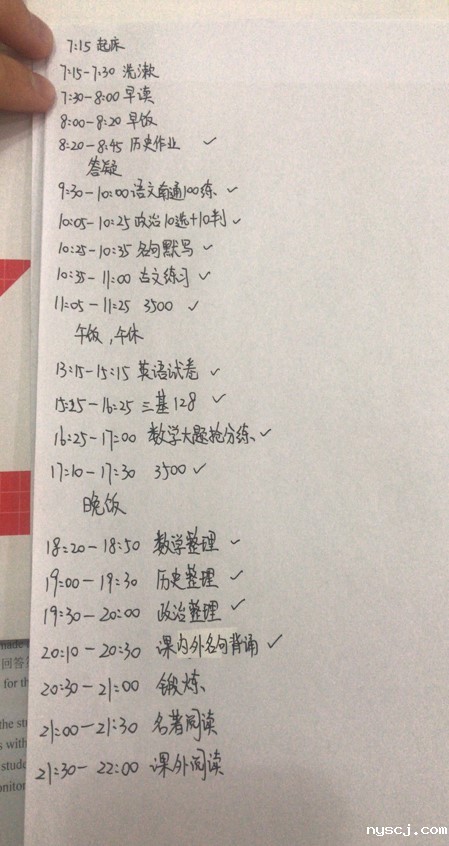 7:15 起床
7:15-7:30 洗漱
7:30-8:00 早读
8:00-8:20 早饭
8:20-8:45 历史作业 ✓
答疑
9:30-10:00 语文南通100练 ✓
10:05-10:25 政治10选+10判 ✓
10:25-10:35 名句默写 ✓
10:35-11:00 古文练习 ✓
11:05-11:25 3500 ✓
午饭,午休
13:15-15:15 英语试卷 ✓
15:25-16:25 三基128 ✓
16:25-17:00 数学大题抢分练 ✓
17:10-17:30 3500 ✓
晚饭
18:20-18:50 数学整理 ✓
19:00-19:30 历史整理 ✓
19:30-20:00 政治整理 ✓
20:10-20:30 课内外名句背诵 ✓
20:30-21:00 锻炼
21:00-21:30 名著阅读
21:30-22:00 课外阅读
made
回答
for th
the stu
s with
stude
onitor
nyscj.com